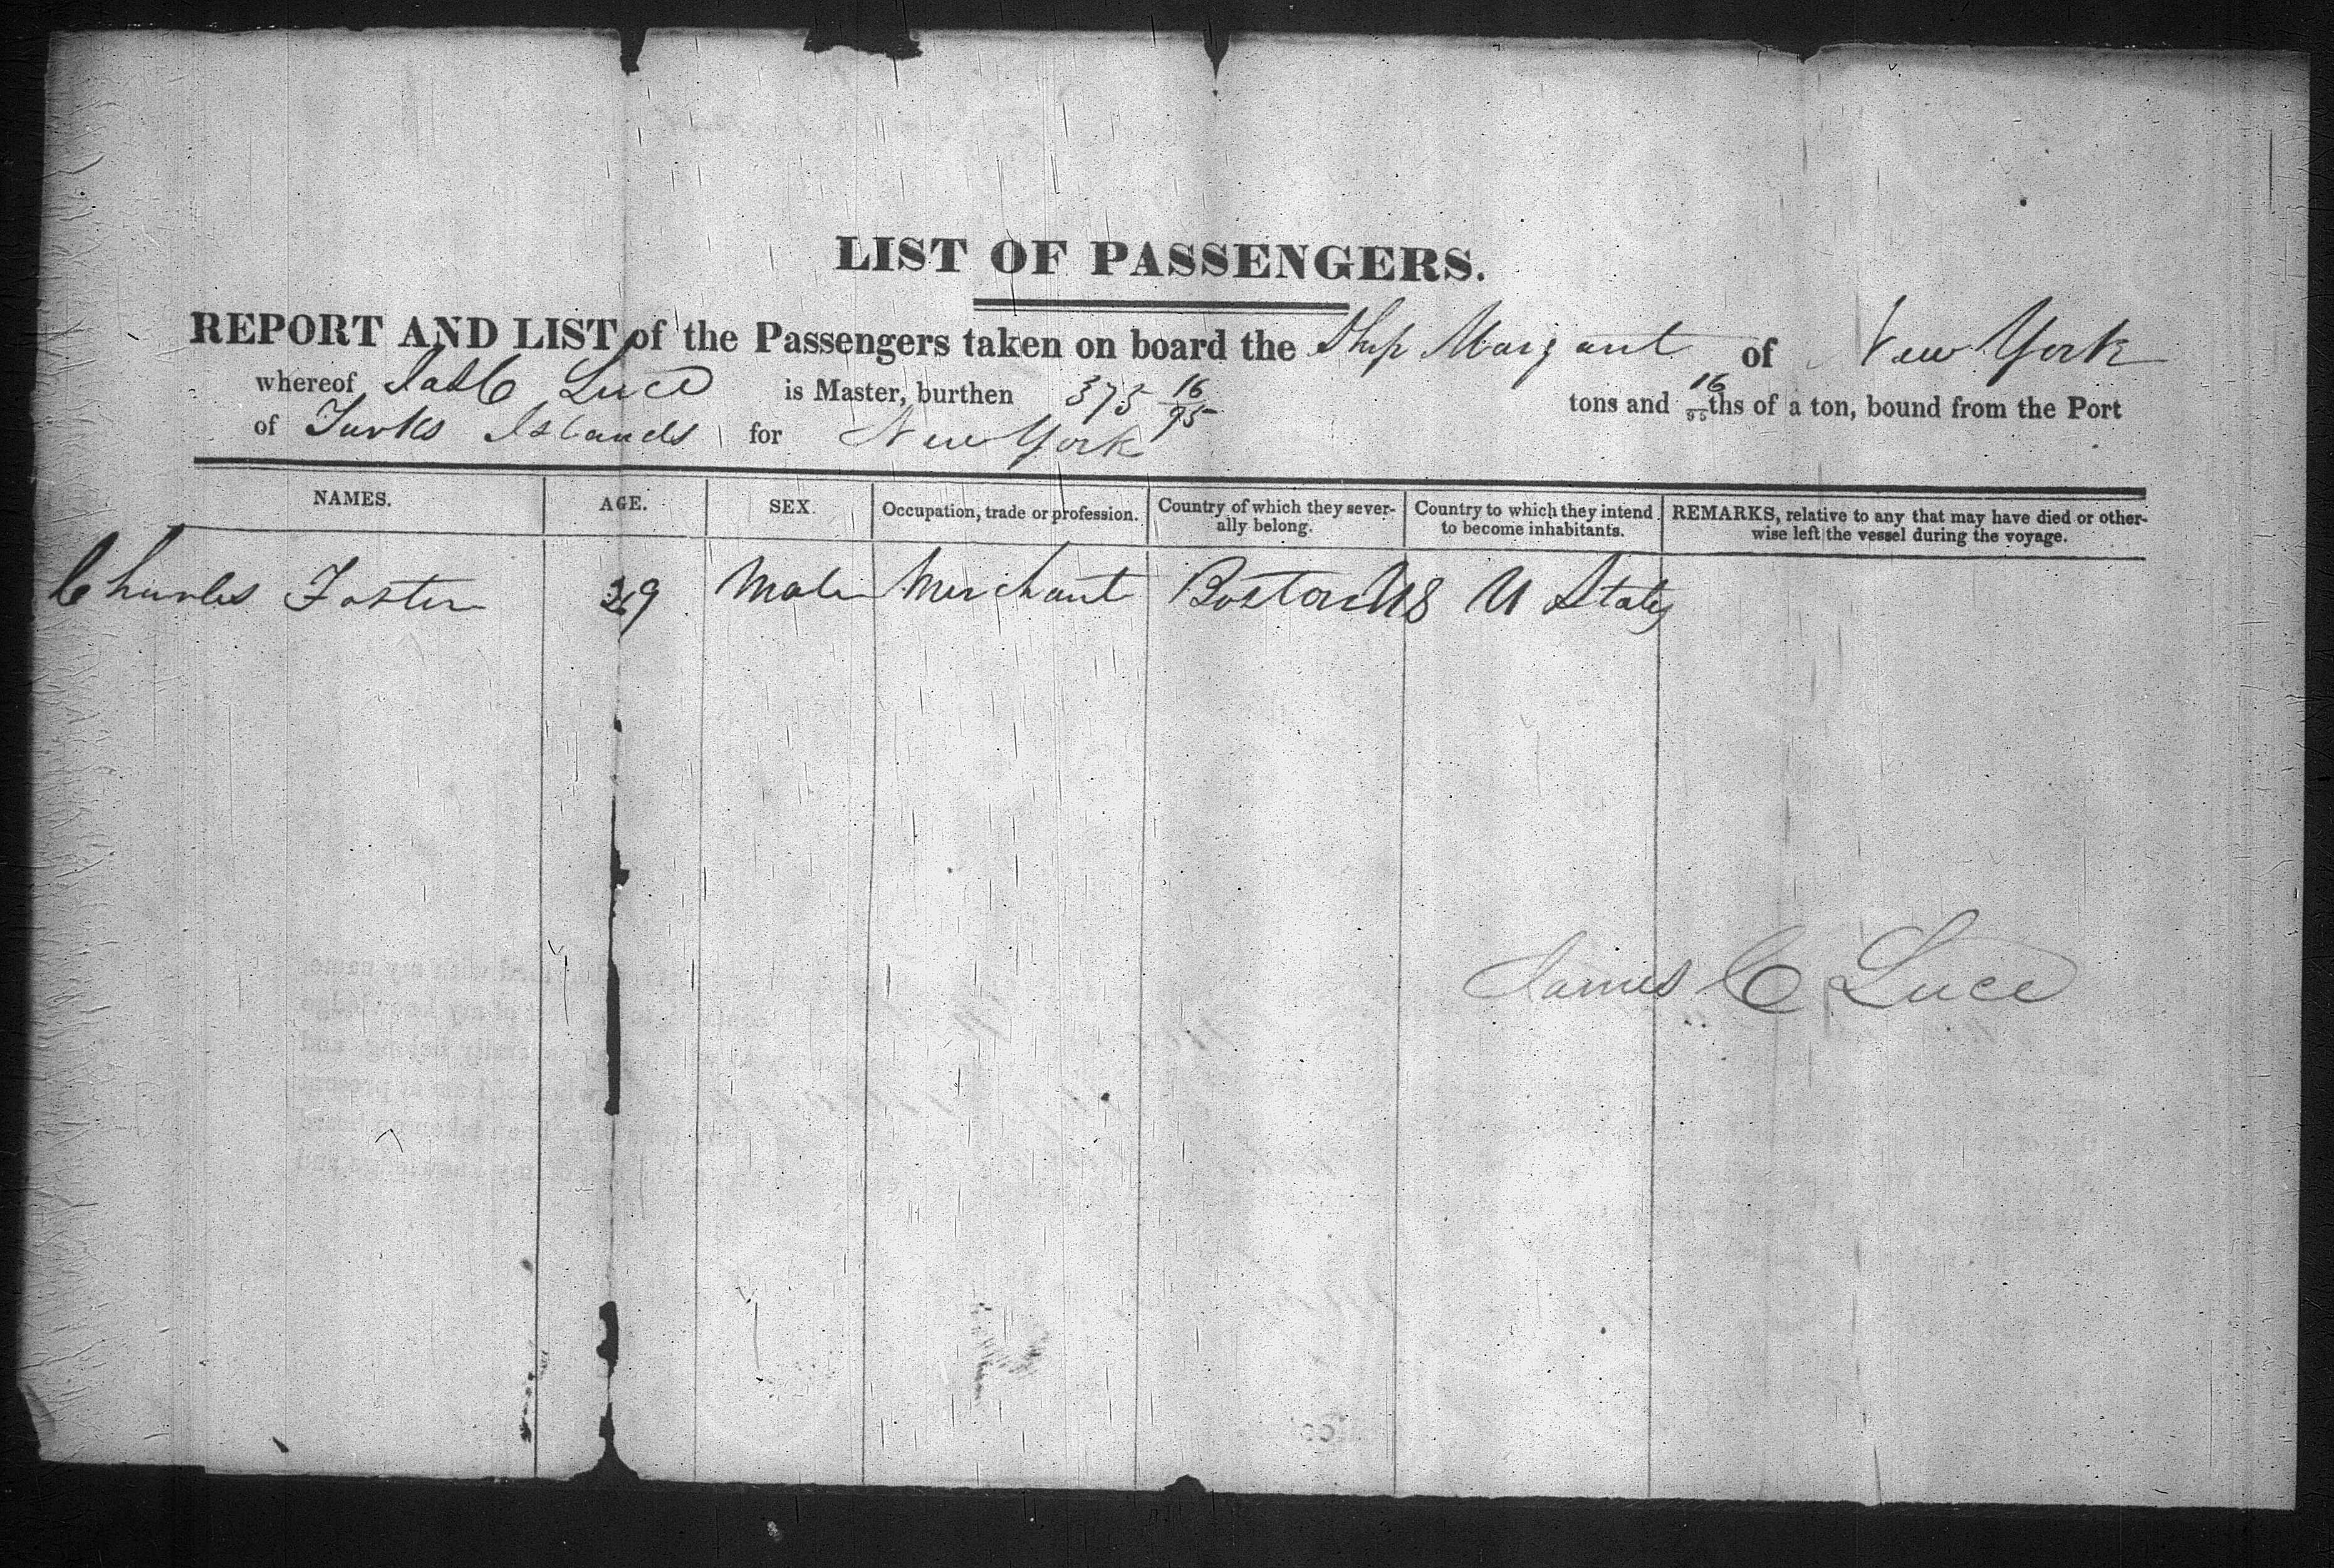 LIST OF PASSENGERS.
REPORT AND LIST of the Passengers taken on board the Ship Margaret of New York
whereof Jas C Luce is Master, burthen 375 16/95 tons and 16/95ths of a ton, bound from the Port
of Turks Islands for New York
NAMES. AGE. SEX. Occupation, trade or profession. Country of which they severally belong. Country to which they intend to become inhabitants. REMARKS, relative to any that may have died or otherwise left the vessel during the voyage.
Charles Foster 29 Male Merchant Boston US U States
James C Luce